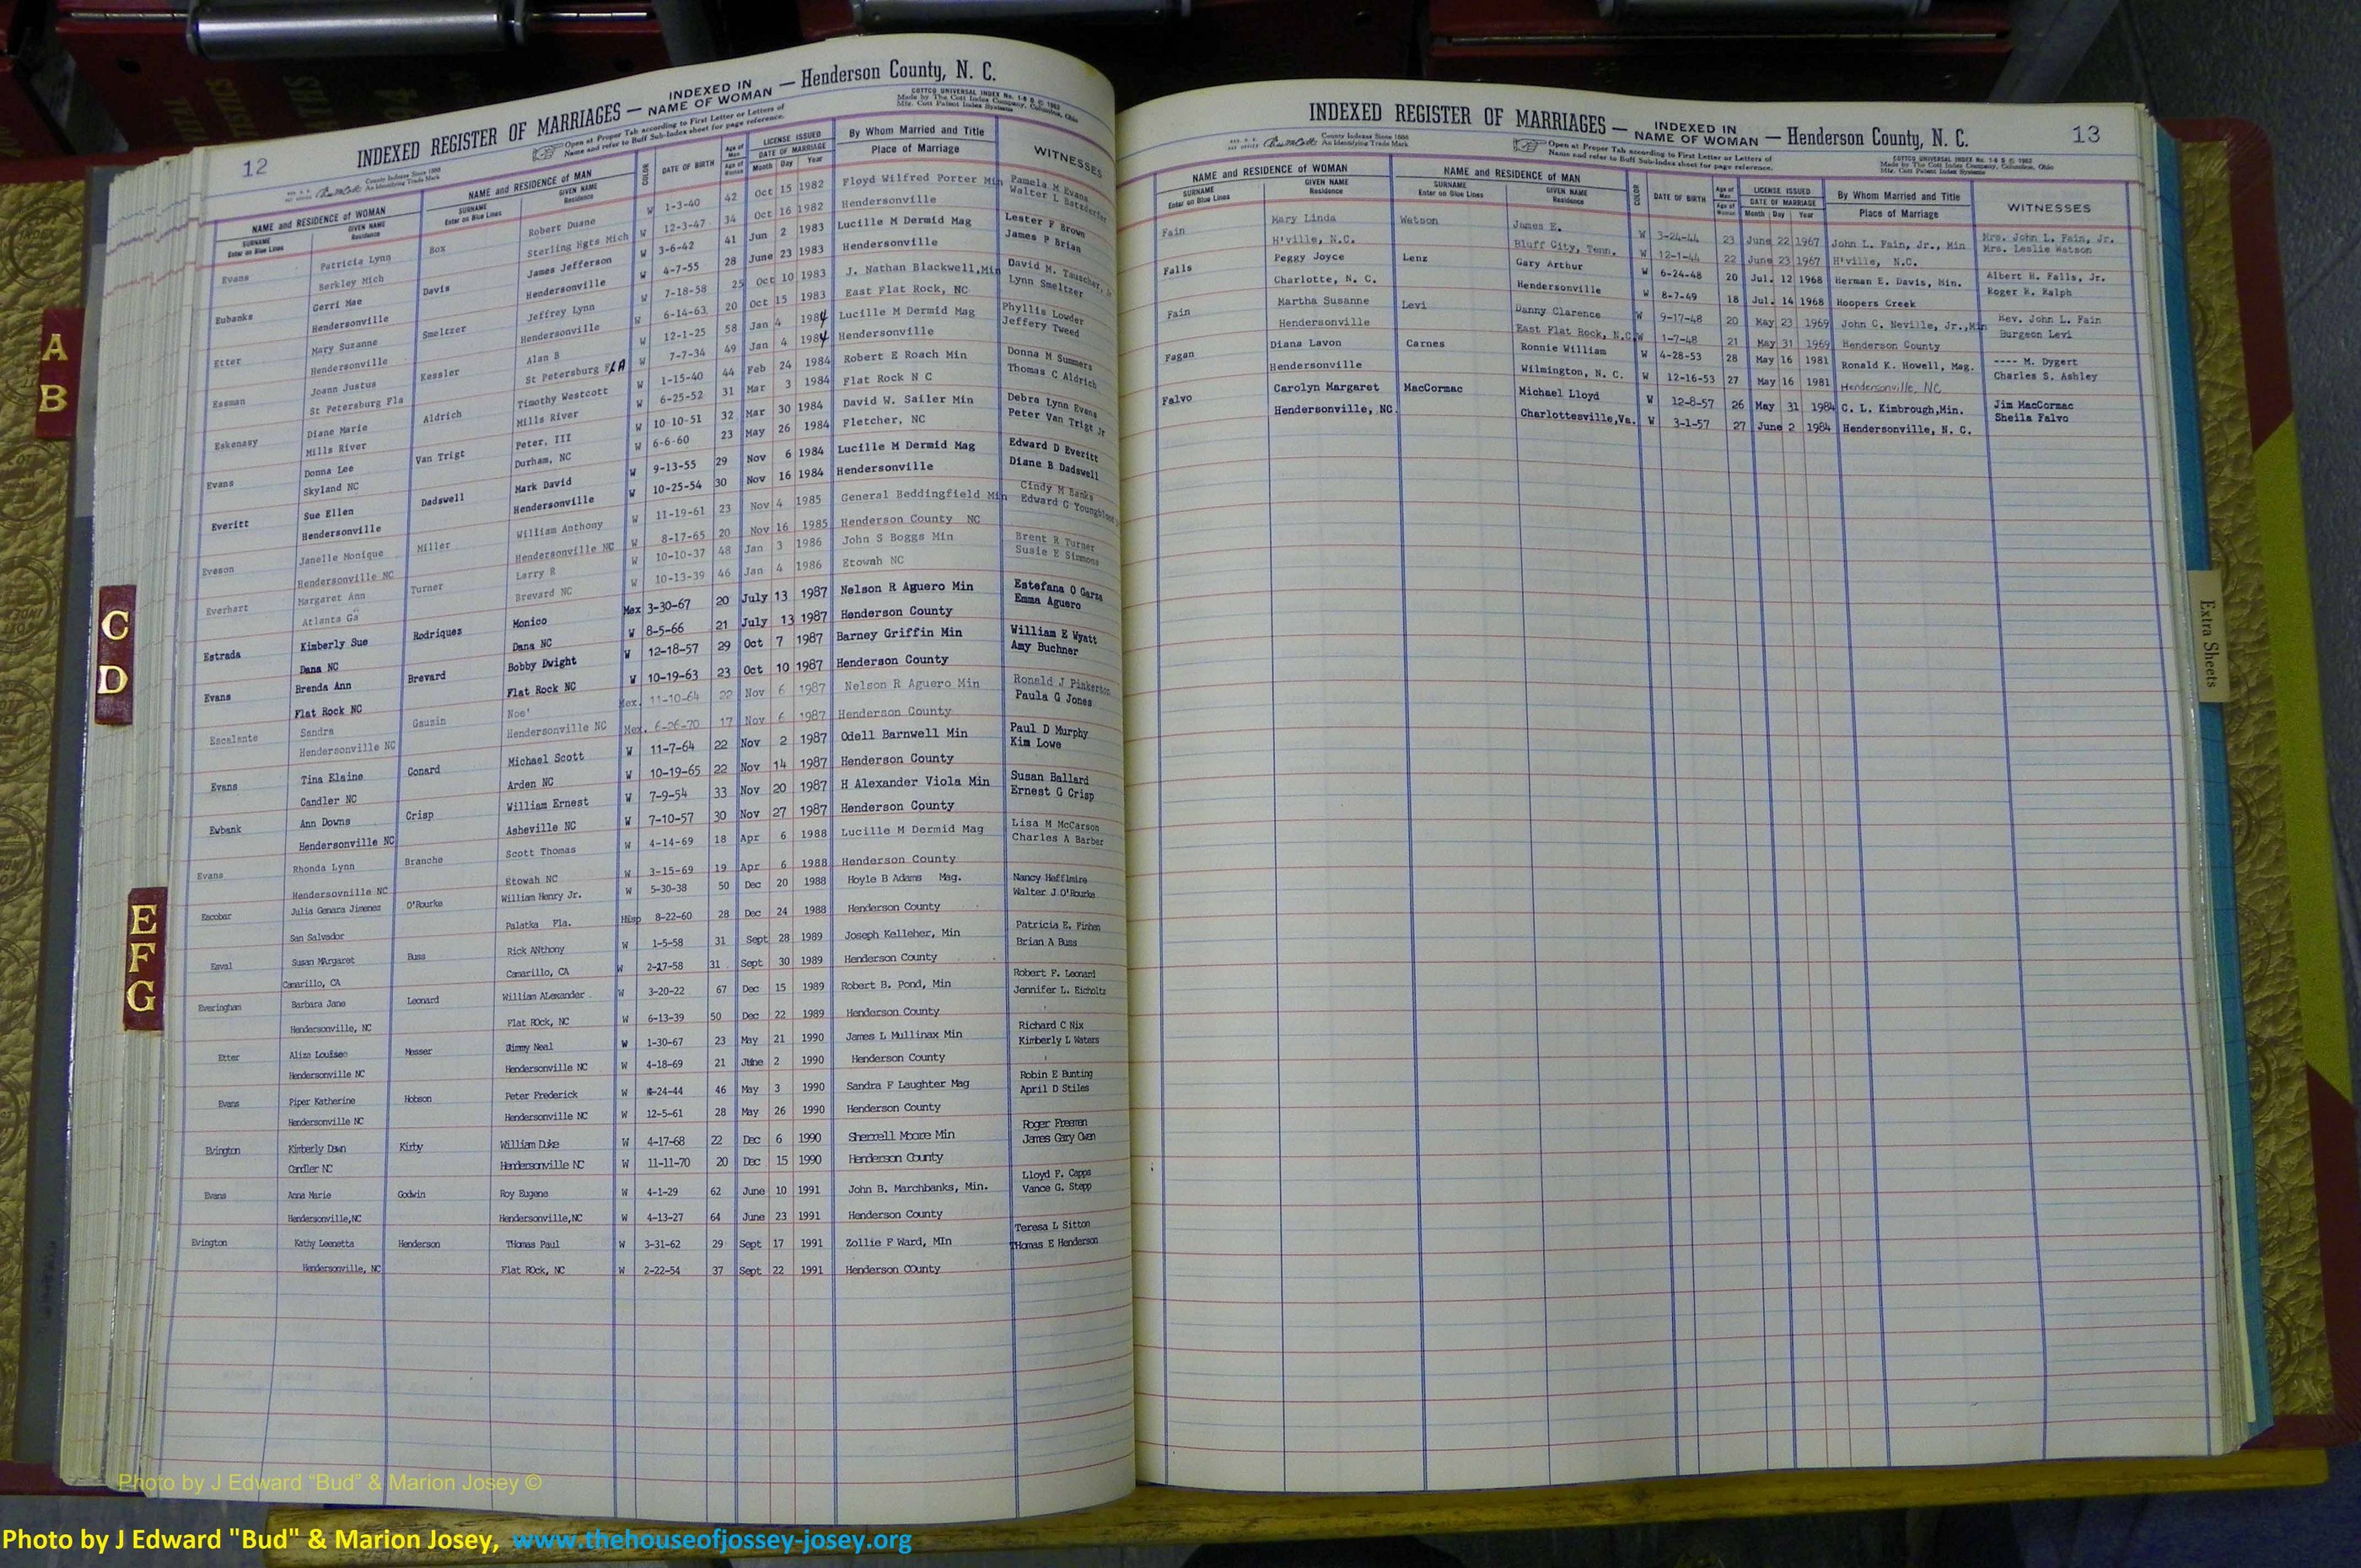 12
INDEXED REGISTER OF MARRIAGES — INDEXED IN NAME OF WOMAN — Henderson County, N. C.
County Indexes Since 1888
An Identifying Trade Mark
Open at Proper Tab according to First Letter or Letters of
Name and refer to Buff Sub-Index sheet for page reference.
COTTCO UNIVERSAL INDEX No. 1-8 B © 1962
Made by The Cott Index Company, Columbus, Ohio
Mfg. Cott Patent Index Systems
NAME and RESIDENCE of WOMAN NAME and RESIDENCE of MAN COLOR DATE OF BIRTH Age of Man LICENSE ISSUED By Whom Married and Title WITNESSES
SURNAME GIVEN NAME SURNAME GIVEN NAME Age of Woman DATE OF MARRIAGE Place of Marriage
Enter on Blue Lines Residence Enter on Blue Lines Residence Month Day Year
Evans Patricia Lynn Box Robert Duane W 1-3-40 42 Oct 15 1982 Floyd Wilfred Porter Min Pamela M Evans
Berkley Mich Sterling Hgts Mich W 12-3-47 34 Oct 16 1982 Hendersonville Walter L Batzdorfer
Eubanks Gerri Mae Davis James Jefferson W 3-6-42 41 Jun 2 1983 Lucille M Dermid Mag Lester F Brown
Hendersonville Hendersonville W 4-7-55 28 June 23 1983 Hendersonville James P Brian
Etter Mary Suzanne Smeltzer Jeffrey Lynn W 7-18-58 25 Oct 10 1983 J. Nathan Blackwell,Min David M. Tauscher, Jr
Hendersonville Hendersonville W 6-14-63 20 Oct 15 1983 East Flat Rock, NC Lynn Smeltzer
Essman Joann Justus Kessler Alan B W 12-1-25 58 Jan 4 1984 Lucille M Dermid Mag Phyllis Lowder
St Petersburg Fla St Petersburg FLA W 7-7-34 49 Jan 4 1984 Hendersonville Jeffery Tweed
Eskenasy Diane Marie Aldrich Timothy Westcott W 1-15-40 44 Feb 24 1984 Robert E Roach Min Donna M Summers
Mills River Mills River W 6-25-52 31 Mar 3 1984 Flat Rock N C Thomas C Aldrich
Evans Donna Lee Van Trigt Peter, III W 10-10-51 32 Mar 30 1984 David W. Sailer Min Debra Lynn Evans
Skyland NC Durham, NC W 6-6-60 23 May 26 1984 Fletcher, NC Peter Van Trigt Jr
Everitt Sue Ellen Dadswell Mark David W 9-13-55 29 Nov 6 1984 Lucille M Dermid Mag Edward D Everitt
Hendersonville Hendersonville W 10-25-54 30 Nov 16 1984 Hendersonville Diane B Dadswell
Eveson Janelle Monique Miller William Anthony W 11-19-61 23 Nov 4 1985 General Beddingfield Min Cindy M Banks
Hendersonville NC Hendersonville NC W 8-17-65 20 Nov 16 1985 Henderson County NC Edward G Youngblood
Everhart Margaret Ann Turner Larry R W 10-10-37 48 Jan 3 1986 John S Boggs Min Brent R Turner
Atlanta Ga Brevard NC W 10-13-39 46 Jan 4 1986 Etowah NC Susie E Simmons
Estrada Kimberly Sue Rodriquez Monico Mex 3-30-67 20 July 13 1987 Nelson R Aguero Min Estefana O Garza
Dana NC Dana NC W 8-5-66 21 July 13 1987 Henderson County Emma Aguero
Evans Brenda Ann Brevard Bobby Dwight W 12-18-57 29 Oct 7 1987 Barney Griffin Min William E Wyatt
Flat Rock NC Flat Rock NC W 10-19-63 23 Oct 10 1987 Henderson County Amy Buchner
Escalante Sandra Gauzin Noe' Mex. 11-10-64 22 Nov 6 1987 Nelson R Aguero Min Ronald J Pinkerton
Hendersonville NC Hendersonville NC Mex. 6-26-70 17 Nov 6 1987 Henderson County Paula G Jones
Evans Tina Elaine Conard Michael Scott W 11-7-64 22 Nov 2 1987 Odell Barnwell Min Paul D Murphy
Candler NC Arden NC W 10-19-65 22 Nov 14 1987 Henderson County Kim Lowe
Ewbank Ann Downs Crisp William Ernest W 7-9-54 33 Nov 20 1987 H Alexander Viola Min Susan Ballard
Hendersonville NC Asheville NC W 7-10-57 30 Nov 27 1987 Henderson County Ernest G Crisp
Evans Rhonda Lynn Branche Scott Thomas W 4-14-69 18 Apr 6 1988 Lucille M Dermid Mag Lisa M McCarson
Hendersovnille NC Etowah NC W 3-15-69 19 Apr 6 1988 Henderson County Charles A Barber
Escobar Julia Genara Jimenez O'Rourke William Henry Jr. W 5-30-38 50 Dec 20 1988 Hoyle B Adams Mag. Nancy Hefflmire
San Salvador Palatka Fla. Hisp 8-22-60 28 Dec 24 1988 Henderson County Walter J O'Rourke
Esval Susan MArgaret Buss Rick ANthony W 1-5-58 31 Sept 28 1989 Joseph Kelleher, Min Patricia E. Finhen
Camarillo, CA Camarillo, CA W 2-27-58 31 Sept 30 1989 Henderson County Brian A Buss
Everingham Barbara Jane Leonard William ALexander W 3-20-22 67 Dec 15 1989 Robert B. Pond, Min Robert F. Leonard
Hendersonville, NC Flat ROck, NC W 6-13-39 50 Dec 22 1989 Henderson County Jennifer L. Eicholtz
Etter Aliza Louisee Messer Jimmy Neal W 1-30-67 23 May 21 1990 James L Mullinax Min Richard C Nix
Hendersonville NC Hendersonville NC W 4-18-69 21 June 2 1990 Henderson County Kimberly L Waters
Evans Piper Katherine Hobson Peter Frederick W 4-24-44 46 May 3 1990 Sandra F Laughter Mag Robin E Bunting
Hendersonville NC Hendersonville NC W 12-5-61 28 May 26 1990 Henderson County April D Stiles
Evington Kimberly Dawn Kirby William Duke W 4-17-68 22 Dec 6 1990 Sherrell Moore Min Roger Freeman
Candler NC Hendersonville NC W 11-11-70 20 Dec 15 1990 Henderson County James Gary Owen
Evans Anna Marie Godwin Roy Eugene W 4-1-29 62 June 10 1991 John B. Marchbanks, Min. Lloyd F. Capps
Hendersonville,NC Hendersonville,NC W 4-13-27 64 June 23 1991 Henderson County Vance G. Stepp
Evington Kathy Leenetta Henderson THomas Paul W 3-31-62 29 Sept 17 1991 Zollie F Ward, MIn Teresa L Sitton
Hendersonville, NC Flat ROck, NC W 2-22-54 37 Sept 22 1991 Henderson COunty THomas E Henderson
13
INDEXED REGISTER OF MARRIAGES — INDEXED IN NAME OF WOMAN — Henderson County, N. C.
County Indexes Since 1888
An Identifying Trade Mark
Open at Proper Tab according to First Letter or Letters of
Name and refer to Buff Sub-Index sheet for page reference.
COTTCO UNIVERSAL INDEX No. 1-8 B © 1962
Made by The Cott Index Company, Columbus, Ohio
Mfg. Cott Patent Index Systems
NAME and RESIDENCE of WOMAN NAME and RESIDENCE of MAN COLOR DATE OF BIRTH Age of Man LICENSE ISSUED By Whom Married and Title WITNESSES
SURNAME GIVEN NAME SURNAME GIVEN NAME Age of Woman DATE OF MARRIAGE Place of Marriage
Enter on Blue Lines Residence Enter on Blue Lines Residence Month Day Year
Fain Mary Linda Watson James E. W 3-24-44 23 June 22 1967 John L. Fain, Jr., Min Mrs. John L. Fain, Jr.
H'ville, N.C. Bluff City, Tenn. W 12-1-44 22 June 23 1967 H'ville, N.C. Mrs. Leslie Watson
Falls Peggy Joyce Lenz Gary Arthur W 6-24-48 20 Jul. 12 1968 Herman E. Davis, Min. Albert H. Falls, Jr.
Charlotte, N. C. Hendersonville W 8-7-49 18 Jul. 14 1968 Hoopers Creek Roger K. Ralph
Fain Martha Susanne Levi Danny Clarence W 9-17-48 20 May 23 1969 John C. Neville, Jr.,Min Rev. John L. Fain
Hendersonville East Flat Rock, N.C. W 1-7-48 21 May 31 1969 Henderson County Burgeon Levi
Fagan Diana Lavon Carnes Ronnie William W 4-28-53 28 May 16 1981 Ronald K. Howell, Mag. ---- M. Dygert
Hendersonville Wilmington, N. C. W 12-16-53 27 May 16 1981 Hendersonville, NC Charles S. Ashley
Falvo Carolyn Margaret MacCormac Michael Lloyd W 12-8-57 26 May 31 1984 C. L. Kimbrough,Min. Jim MacCormac
Hendersonville, NC Charlottesville,Va. W 3-1-57 27 June 2 1984 Hendersonville, N. C. Sheila Falvo
A
B
C
D
E
F
G
Extra Sheets
Photo by J Edward “Bud” & Marion Josey ©
Photo by J Edward "Bud" & Marion Josey, www.thehouseofjossey-josey.org